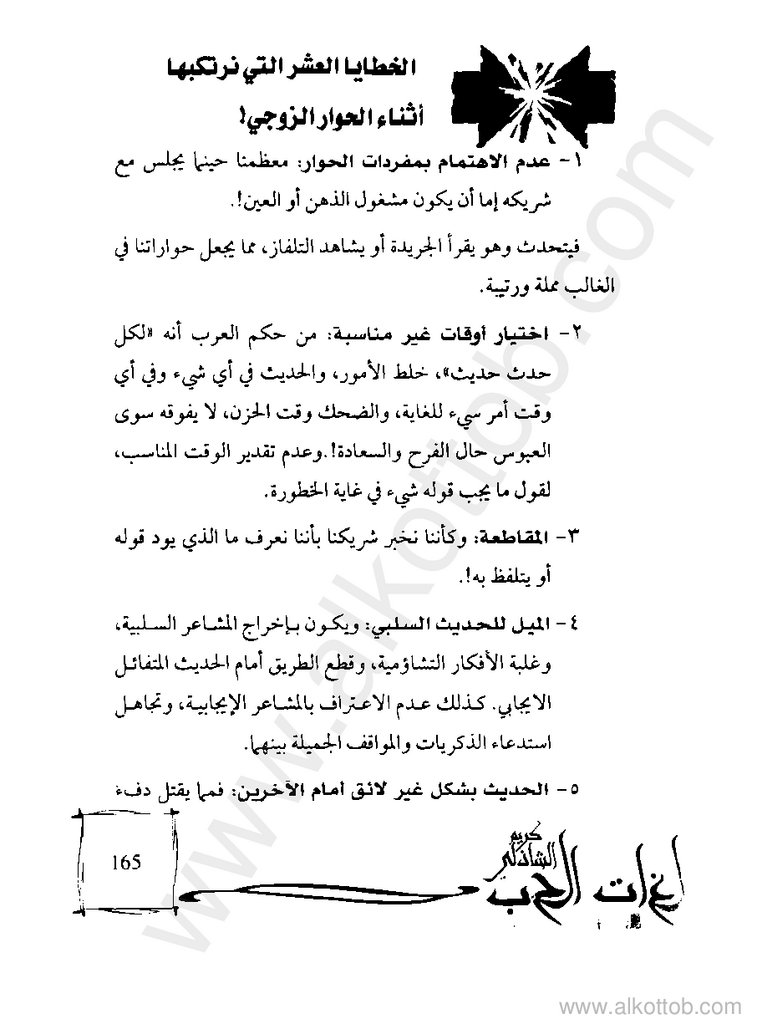 الخطايا العشر التي نرتكبها
أثناء الحوار الزوجي!
١- عدم الاهتمام بمفردات الحوار: معظمنا حينما يجلس مع
شريكه إما أن يكون مشغول الذهن أو العين!.
فيتحدث وهو يقرأ الجريدة أو يشاهد التلفاز، مما يجعل حواراتنا في
الغالب مملة ورتيبة.
٢- اختيار أوقات غير مناسبة: من حكم العرب أنه «لكل
حدث حديث»، خلط الأمور، والحديث في أي شيء وفي أي
وقت أمر سيء للغاية، والضحك وقت الحزن، لا يفوقه سوى
العبوس حال الفرح والسعادة!.وعدم تقدير الوقت المناسب،
لقول ما يجب قوله شيء في غاية الخطورة.
٣- المقاطعة: وكأننا نخبر شريكنا بأننا نعرف ما الذي يود قوله
أو يتلفظ به!.
٤- الميل للحديث السلبي: ويكون بإخراج المشاعر السلبية،
وغلبة الأفكار التشاؤمية، وقطع الطريق أمام الحديث المتفائل
الايجابي. كذلك عدم الاعتراف بالمشاعر الإيجابية، وتجاهل
استدعاء الذكريات والمواقف الجميلة بينهما.
٥- الحديث بشكل غير لائق أمام الآخرين: فمما يقتل دفء
كريم
الشاذلي
لغات الحب
165
www.alkottob.com
www.alkottob.com